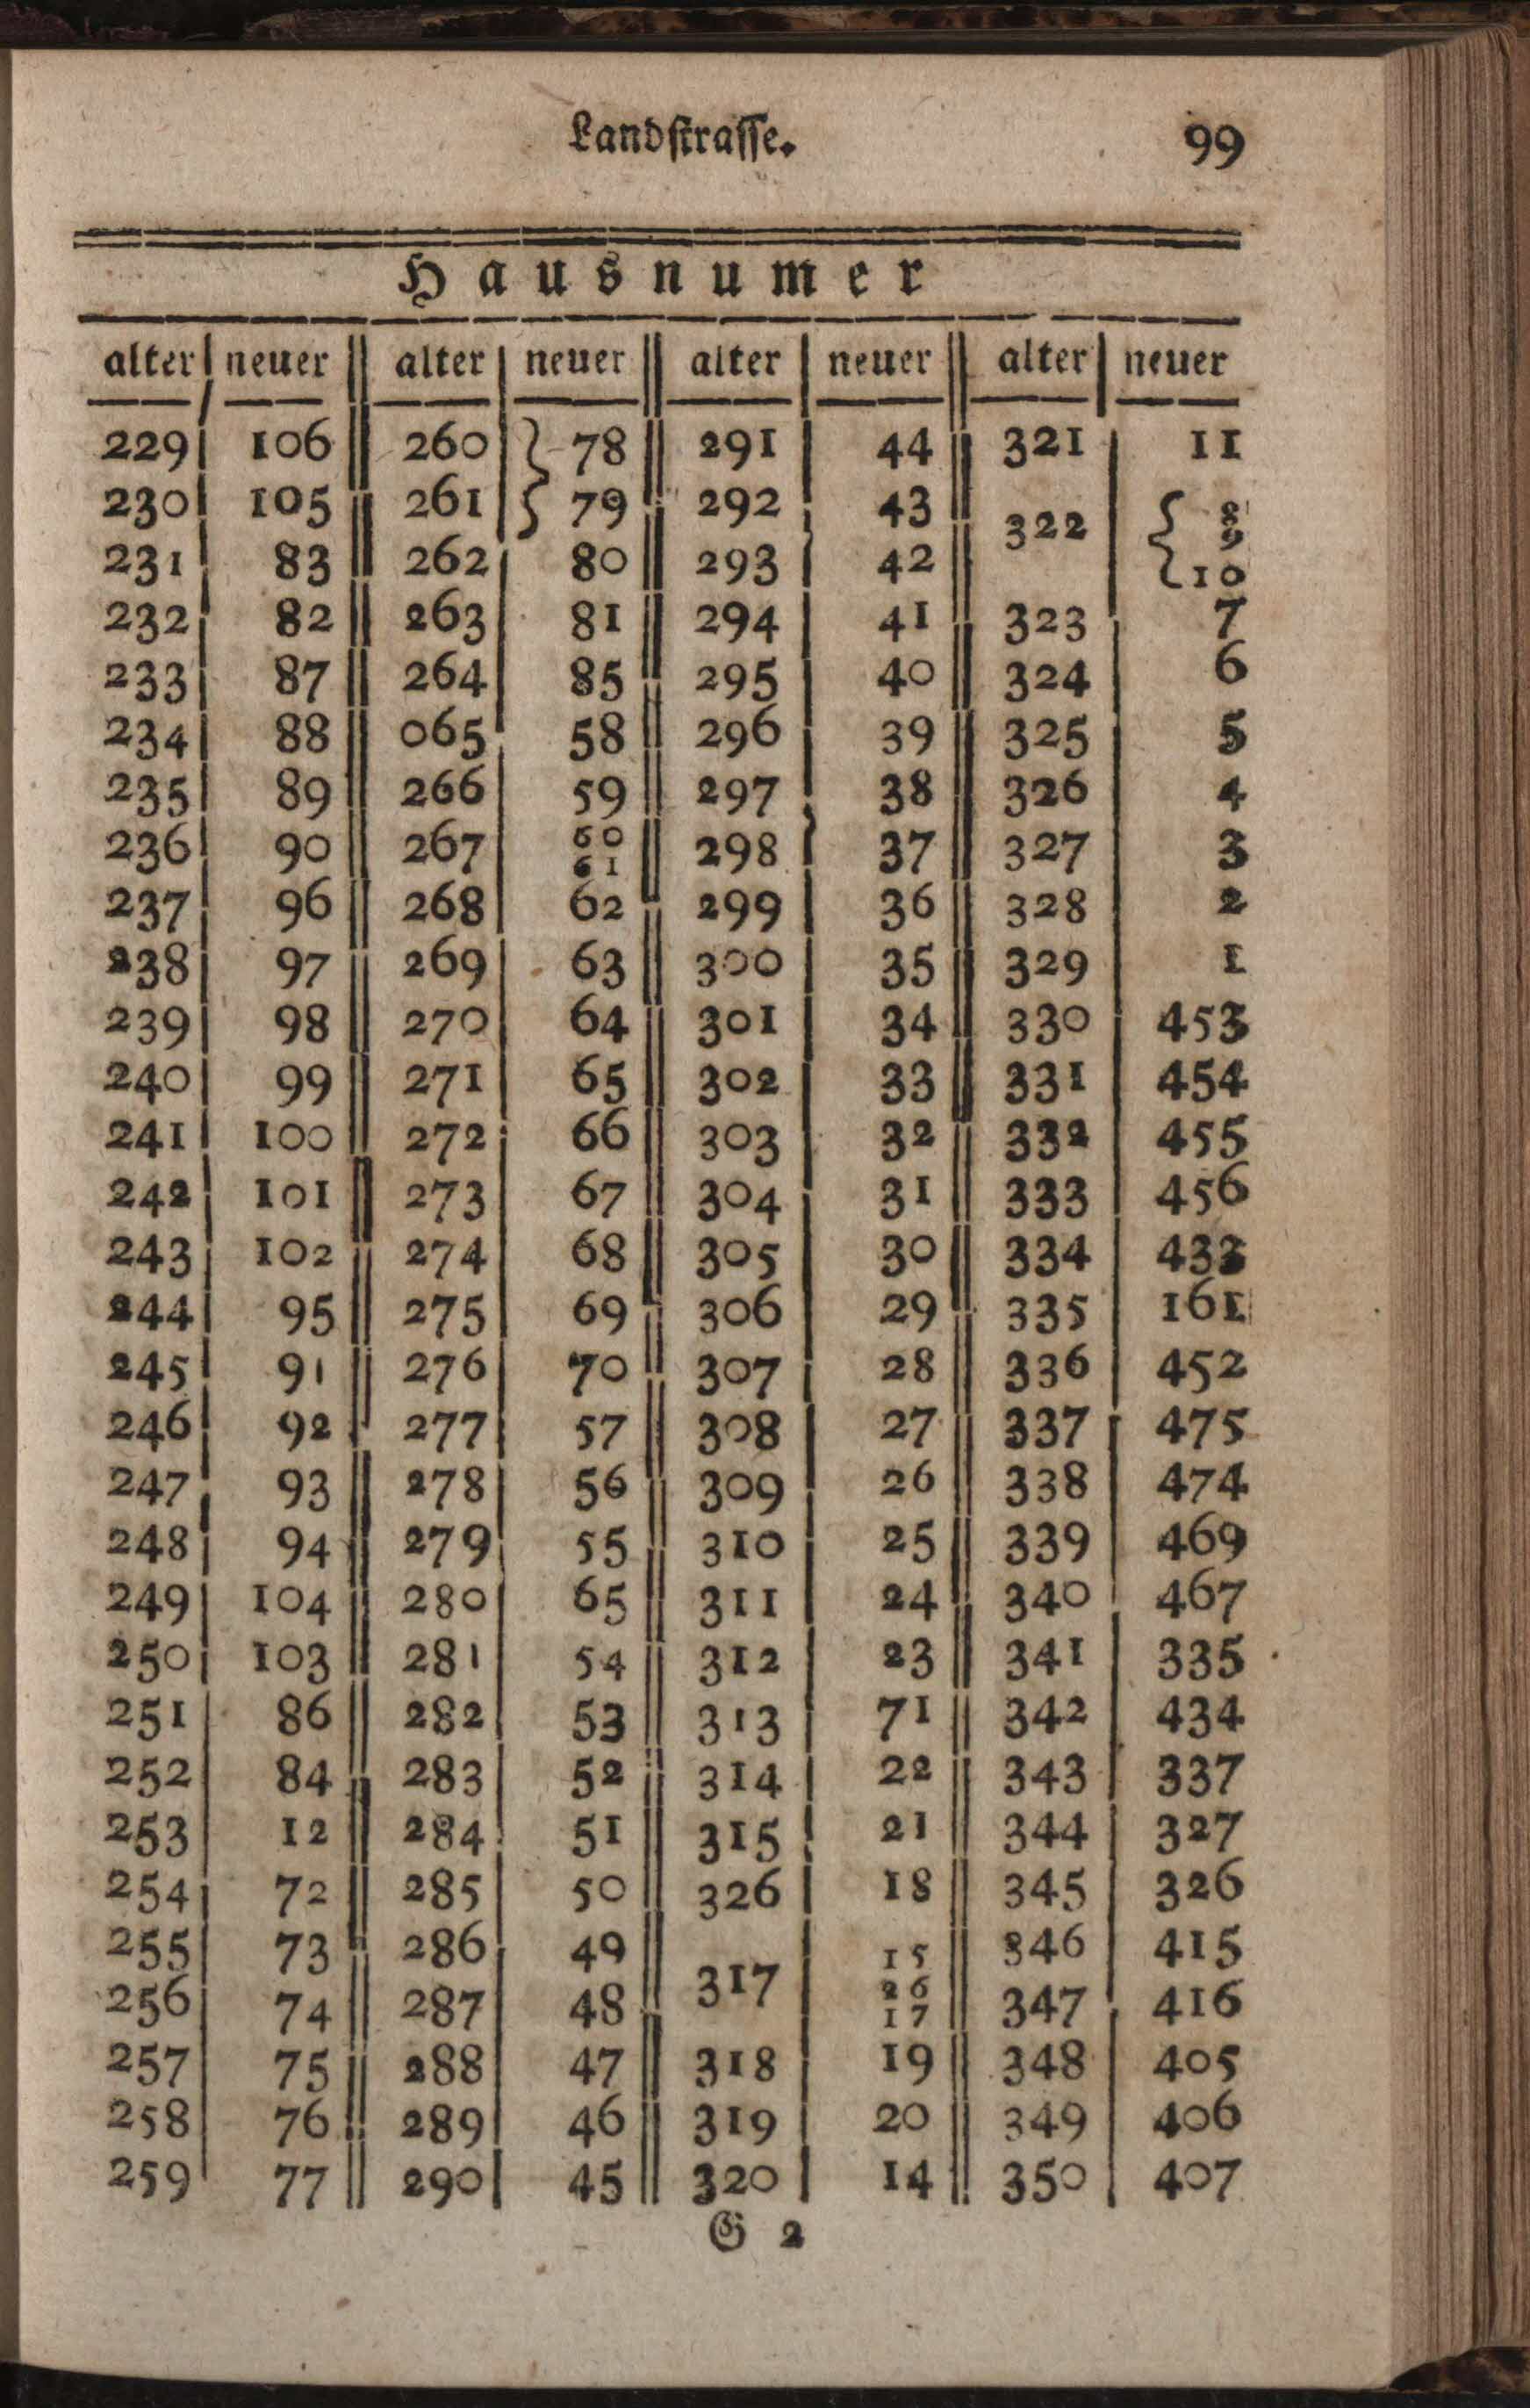 Landstrasse. 99
Hausnumer
alter neuer alter neuer alter neuer alter neuer
229 106 260 } 78 291 44 321 11
230 105 261 } 79 292 43 322 { 8
9
231 83 262 80 293 42 10
232 82 263 81 294 41 323 7
233 87 264 85 295 40 324 6
234 88 065 58 296 39 325 5
235 89 266 59 297 38 326 4
236 90 267 60 298 37 327 3
61
237 96 268 62 299 36 328 2
238 97 269 63 300 35 329 1
239 98 270 64 301 34 330 453
240 99 271 65 302 33 331 454
241 100 272 66 303 32 332 455
242 101 273 67 304 31 333 456
243 102 274 68 305 30 334 433
244 95 275 69 306 29 335 161
245 91 276 70 307 28 336 452
246 92 277 57 308 27 337 475
247 93 278 56 309 26 338 474
248 94 279 55 310 25 339 469
249 104 280 65 311 24 340 467
250 103 281 54 312 23 341 335
251 86 282 53 313 71 342 434
252 84 283 52 314 22 343 337
253 12 284 51 315 21 344 327
254 72 285 50 326 18 345 326
255 73 286 49 317 15 346 415
26
256 74 287 48 17 347 416
257 75 288 47 318 19 348 405
258 76 289 46 319 20 349 406
259 77 290 45 320 14 350 407
G 2